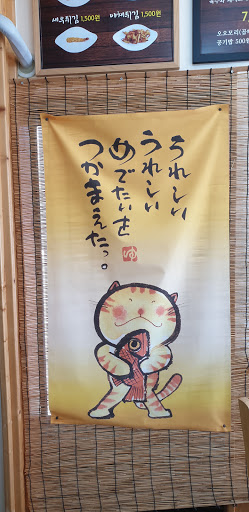 새우튀김 1,500원
야채튀김 1,500원
7
오오모리(곱
공기밥 500원
うれしい
うれしい
めでたいを
つかまえたっ。
ゆ